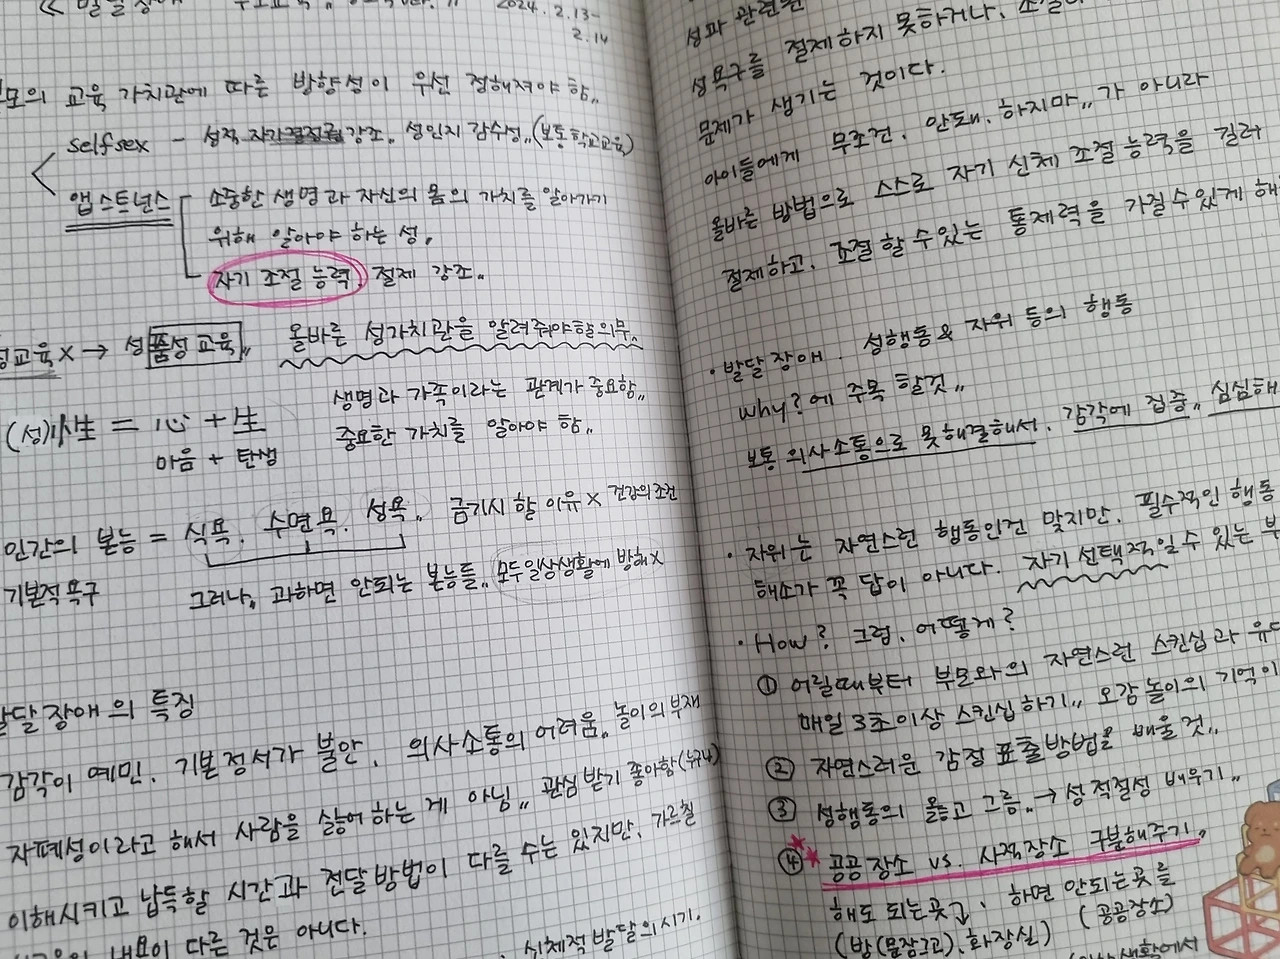 2024. 2.13-
2.14
교육 가치관에 따른 방향성이 우선 정해져야 함〃
selfsex - 성적 강조. 성인지 감수성〃(보통학교교육)
앱스트넌스 소중한 생명과 자신의 몸의 가치를 알아가기
위해 알아야 하는 성.
자기 조절 능력. 절제 강조〃
성교육 X → 성품성교육〃 올바른 성가치관을 알려줘야할의무〃
생명과 가족이라는 관계가 중요함〃
중요한 가치를 알아야 함〃
(성) = 心 + 生
마음 + 탄생
인간의 본능 = 식욕. 수면욕. 성욕〃 금기시 할 이유 X 건강의조건
기본적욕구 그러나〃 과하면 안되는 본능들〃 모두일상생활에 방해X
발달장애의 특징
감각이 예민. 기본정서가 불안. 의사소통의 어려움〃 놀이의부재
자폐성이라고 해서 사람을 싫어하는 게 아님〃 관심 받기 좋아함(누구나)
이해시키고 납득할 시간과 전달방법이 다를 수는 있지만. 가르칠
내용이 다른 것은 아니다.
신체적 발달의시기.
성과 관련된
성욕구를 절제하지 못하거나.
문제가 생기는 것이다.
아이들에게 무조건. 안돼. 하지마〃 가 아니라
올바른 방법으로 스스로 자기 신체 조절능력을 길러
절제하고. 조절할수있는 통제력을 가질수있게 해
· 발달장애. 성행동& 자위 등의 행동
why? 에 주목 할것〃
보통 의사소통으로 못해결해서. 감각에 집중〃 심심해
· 자위는 자연스런 행동인건 맞지만. 필수적인 행동
해소가 꼭 답이 아니다. 자기 선택적일수 있는 부
· How? 그럼. 어떻게?
① 어릴때부터 부모와의 자연스런 스킨십과 유대
매일 3초이상 스킨십하기〃 오감놀이의 기억이
② 자연스러운 감정 표출방법을 배울 것〃
③ 성행동의 옳고 그름〃→ 성적절성 배우기〃
④ 공공장소 vs. 사적장소 구분해주기〃
해도 되는곳. 하면 안되는곳을
(방(문잠그고). 화장실) (공공장소)
생활에서